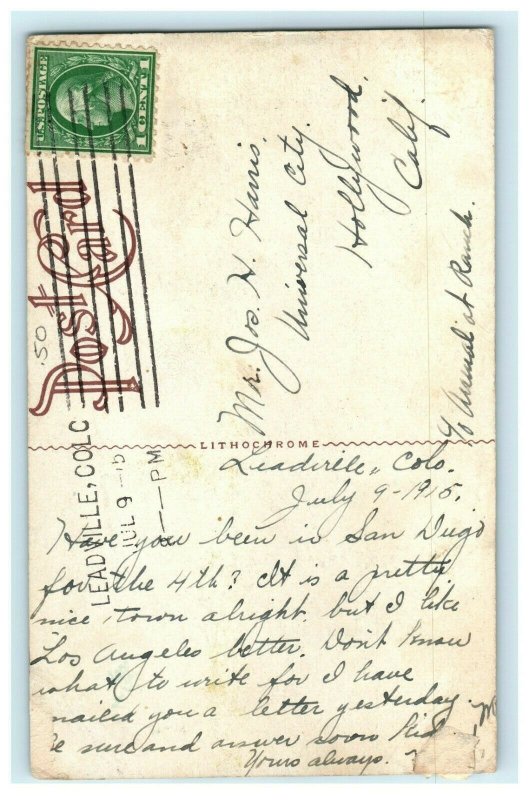 U.S. POSTAGE
1 CENT 1
Post Card
50
LEADVILLE, COLO
JUL 9
PM
Mr. Jos. H. Harris.
Universal City.
Hollywood.
Calif.
c/o Arsenal at Ranch.
LITHOCHROME
Leadville, Colo.
July 9-1915.
Have you been in San Diego
for the 4th? It is a pretty
nice town alright. but I like
Los Angeles better. Don't know
what to write for I have
mailed you a letter yesterday.
Be sure and answer soon Kid
Yours always.